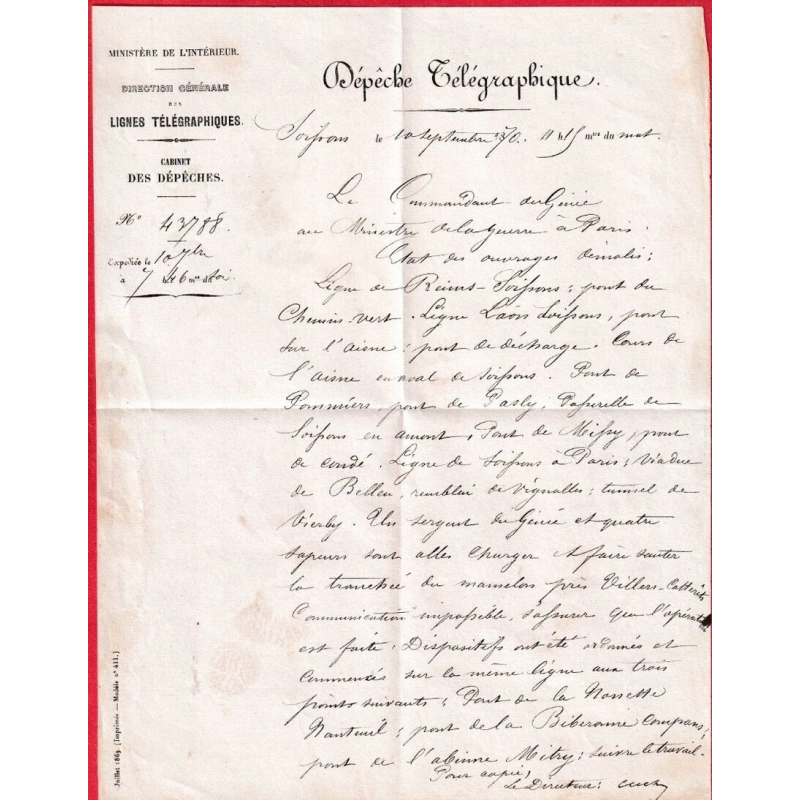 MINISTÈRE DE L'INTÉRIEUR.
DIRECTION GÉNÉRALE
DES
LIGNES TÉLÉGRAPHIQUES.
CABINET
DES DÉPÊCHES.
N° 43788.
Expédiée le 10 7bre
à 7 h 46 m du soir
Dépêche Télégraphique.
Soissons le 10 septembre 1870. 11 h 15 mes du mat.
Le Commandant du Génie
au Ministre de la guerre à Paris.
Etat des ouvrages démolis:
Ligne de Reims-Soissons; pont du
Chemin-vert. Ligne Laon Soissons, pont
sur l'aisne; pont de décharge. Cours de
l'aisne en aval de Soissons. Pont de
Pommiers, pont de Pasly, Passerelle de
Soissons en amont, Pont de Missy, pont
de condé. Ligne de Soissons à Paris; viaduc
de Belleu, remblai de Vignolles; tunnel de
Vierzy. Un sergent du Génie et quatre
sapeurs sont allés charger et faire sauter
la tranchée du mamelon près Villers-Cotterêts
Communication impossible, s'assurer que l'opération
est faite, Dispositifs ont été ordonnés et
commencés sur la même ligne aux trois
points suivants; Pont de la Nonette
Nanteuil; pont de la Biberonne Compans;
pont de l'abime Mitry; suivre le travail.
Pour copie;
Le Directeur:
Juillet 1869. (Imprimés — Modèle n° 411.)